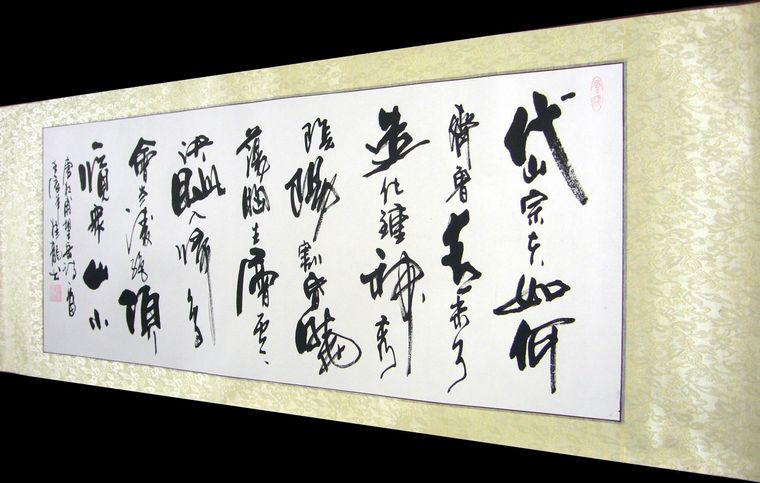 岱宗夫如何
齊魯青未了
造化鍾神秀
陰陽割昏曉
蕩胸生層雲
決眦入歸鳥
會當凌絕頂
一覽眾山小
唐杜甫望岳詩